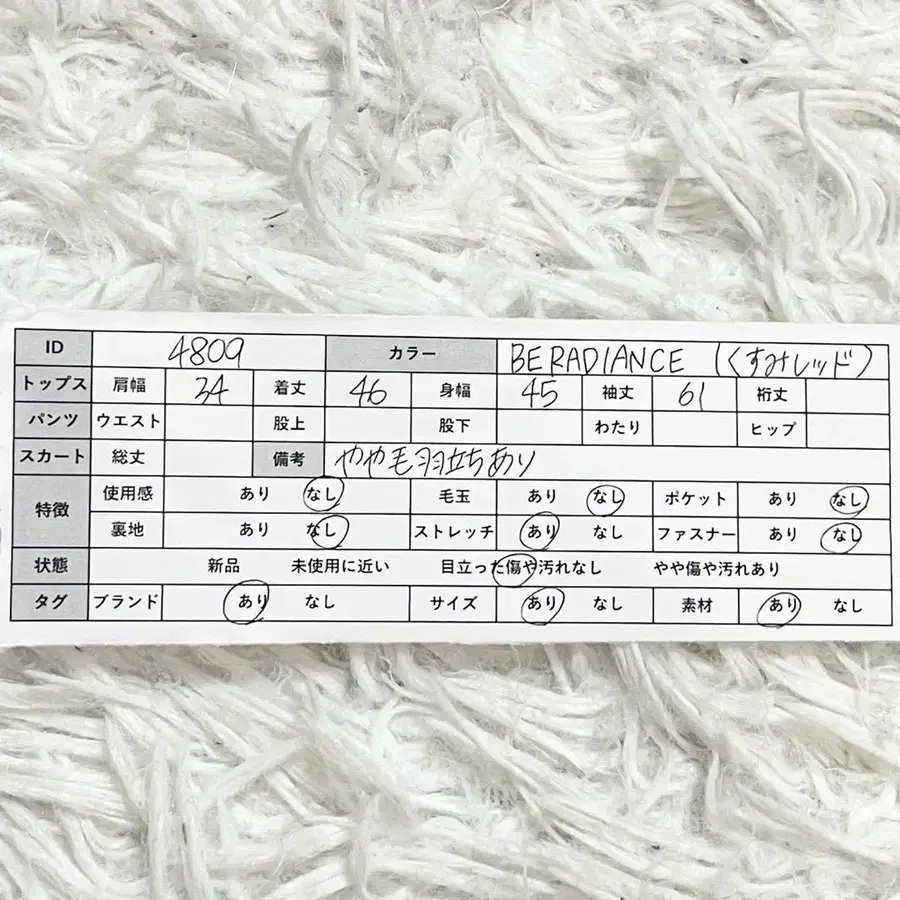 ID 4809 カラー BE RADIANCE (くすみレッド)
トップス 肩幅 34 着丈 46 身幅 45 袖丈 61 裄丈
パンツ ウエスト 股上 股下 わたり ヒップ
スカート 総丈 備考 やや毛羽立ちあり
特徴 使用感 あり なし 毛玉 あり なし ポケット あり なし
裏地 あり なし ストレッチ あり なし ファスナー あり なし
状態 新品 未使用に近い 目立った傷や汚れなし やや傷や汚れあり
タグ ブランド あり なし サイズ あり なし 素材 あり なし